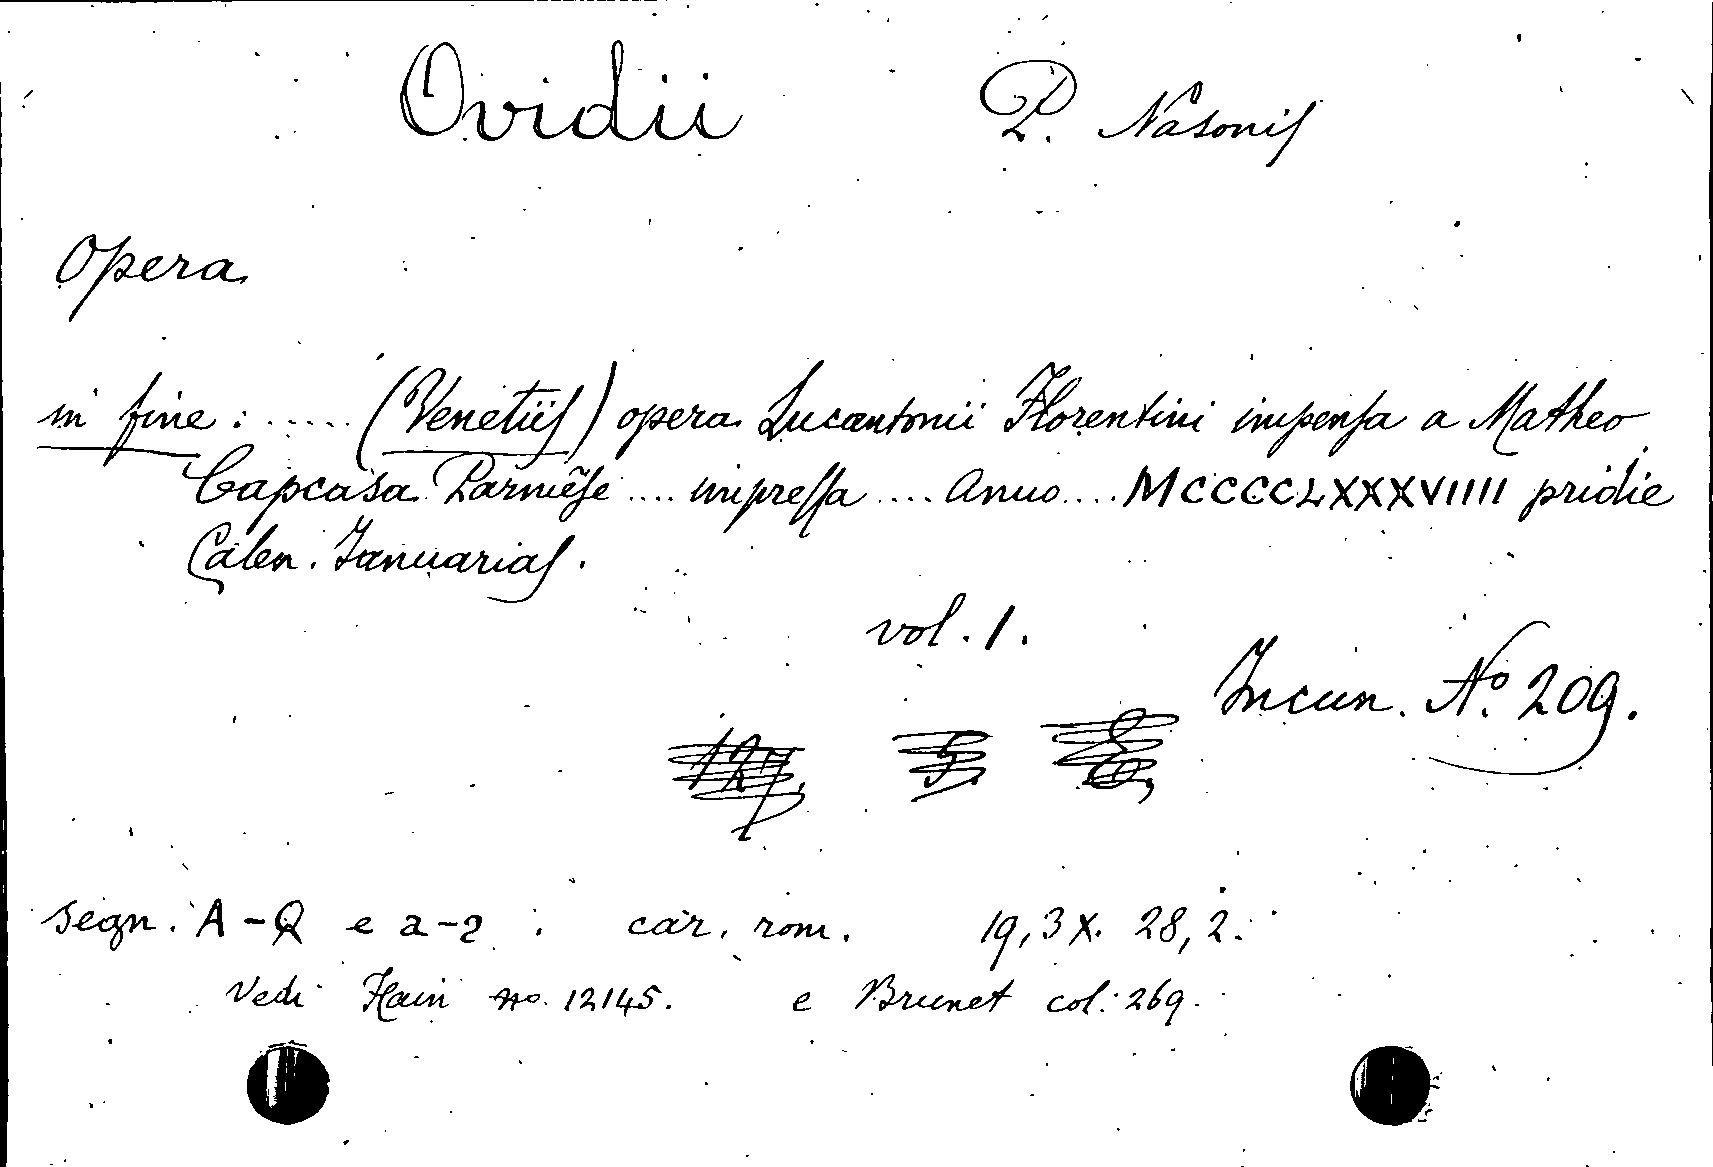 Ovidii P. Nasonis
Opera
in fine: ..... (Venetiis) opera Lucantonii Florentini impensa a Matheo
Capcasa Parmēse .... impressa .... Anno .... MCCCCLXXXVIIII pridie
Calen. Ianuarias.
vol. 1.
Incun. No. 209.
segn. A-Q e a-z. car. rom. 19,3 x. 28,2.
Vedi Hain no. 12145. e Brunet col: 269.